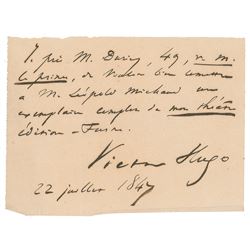 J. prie M. Durif, 49, r. M.
le prince, de vouloir bien remettre
à M. Léopold Michaud un
exemplaire complet de mon théâtre
édition - Furne.
Victor Hugo
22 juillet 1847